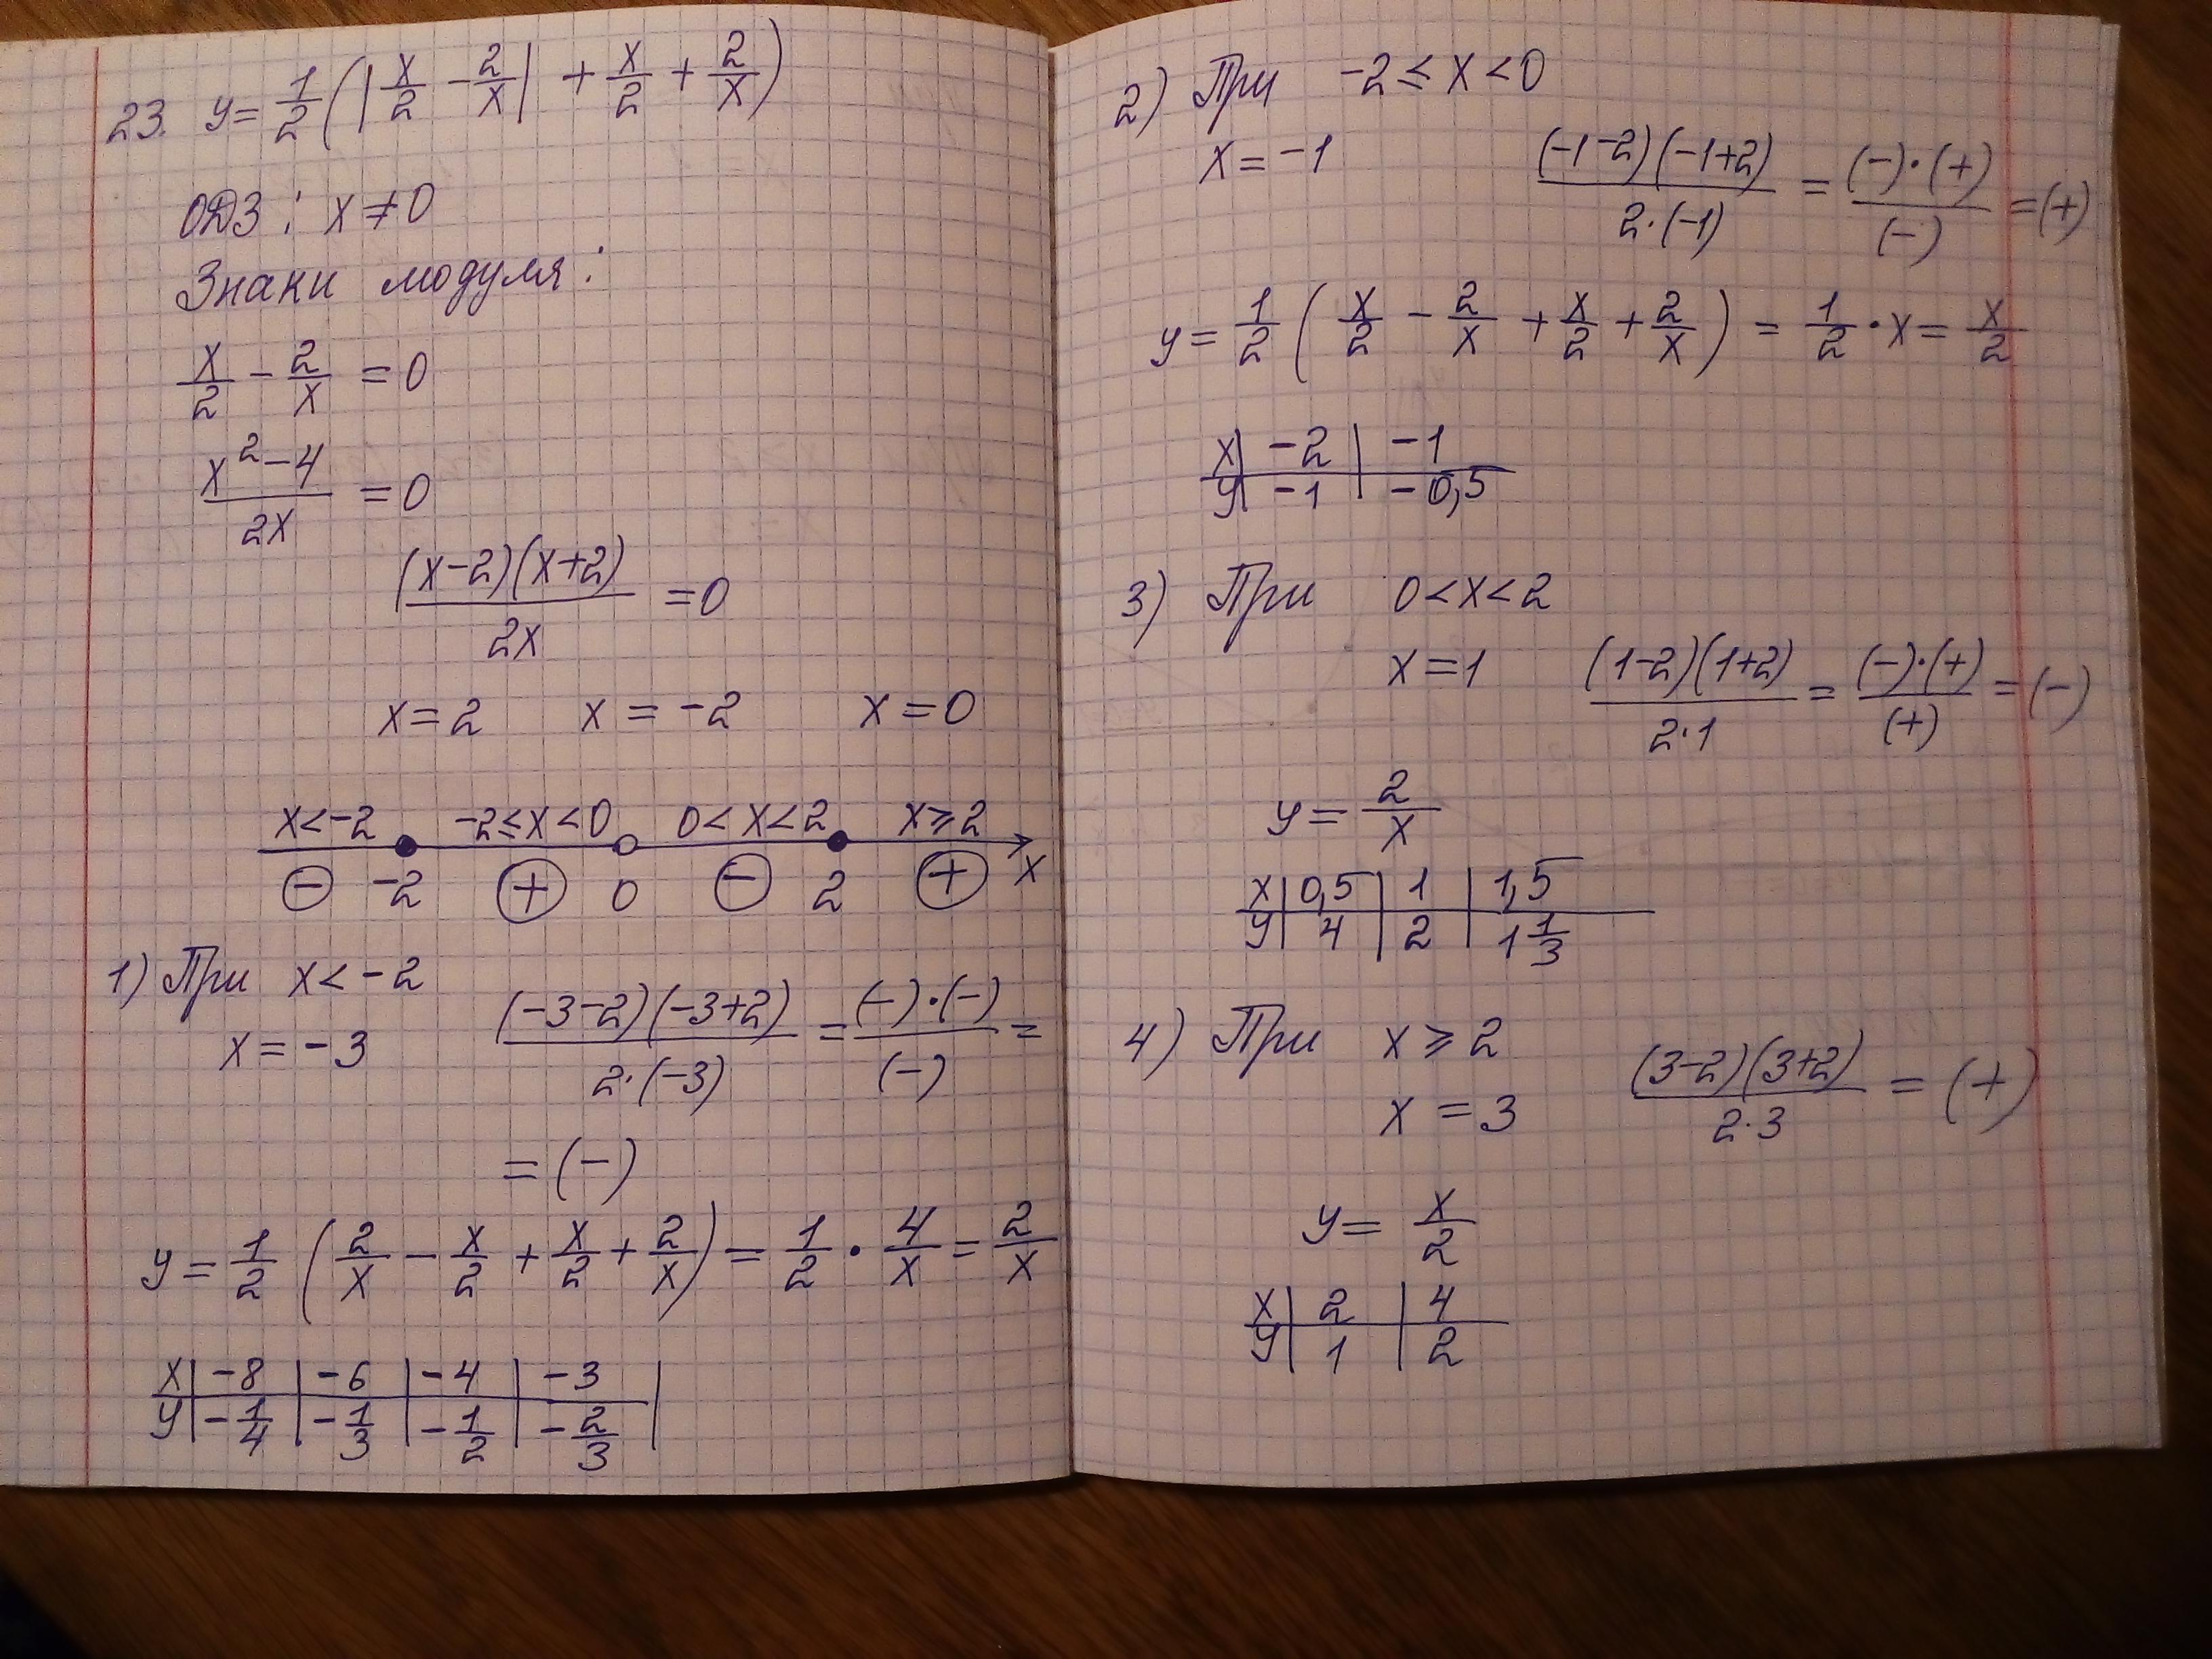 23. y = 1/2 (|x/2 - 2/x| + x/2 + 2/x)
ОДЗ: x ≠ 0
Знаки модуля:
x/2 - 2/x = 0
(x² - 4)/(2x) = 0
((x-2)(x+2))/(2x) = 0
x = 2   x = -2   x = 0
x < -2   -2 ≤ x < 0   0 < x < 2   x ⩾ 2
(-) -2 (+) 0 (-) 2 (+) x
1) При x < -2
x = -3   ((-3-2)(-3+2))/(2·(-3)) = ((-)·(-))/(-) =
= (-)
y = 1/2 (2/x - x/2 + x/2 + 2/x) = 1/2 · 4/x = 2/x
x | -8 | -6 | -4 | -3 |
y | -1/4 | -1/3 | -1/2 | -2/3 |
2) При -2 ≤ x < 0
x = -1   ((-1-2)(-1+2))/(2·(-1)) = ((-)·(+))/(-) = (+)
y = 1/2 (x/2 - 2/x + x/2 + 2/x) = 1/2 · x = x/2
x | -2 | -1
y | -1 | -0,5
3) При 0 < x < 2
x = 1   ((1-2)(1+2))/(2·1) = ((-)·(+))/(+) = (-)
y = 2/x
x | 0,5 | 1 | 1,5
y | 4 | 2 | 1 1/3
4) При x ⩾ 2
x = 3   ((3-2)(3+2))/(2·3) = (+)
y = x/2
x | 2 | 4
y | 1 | 2